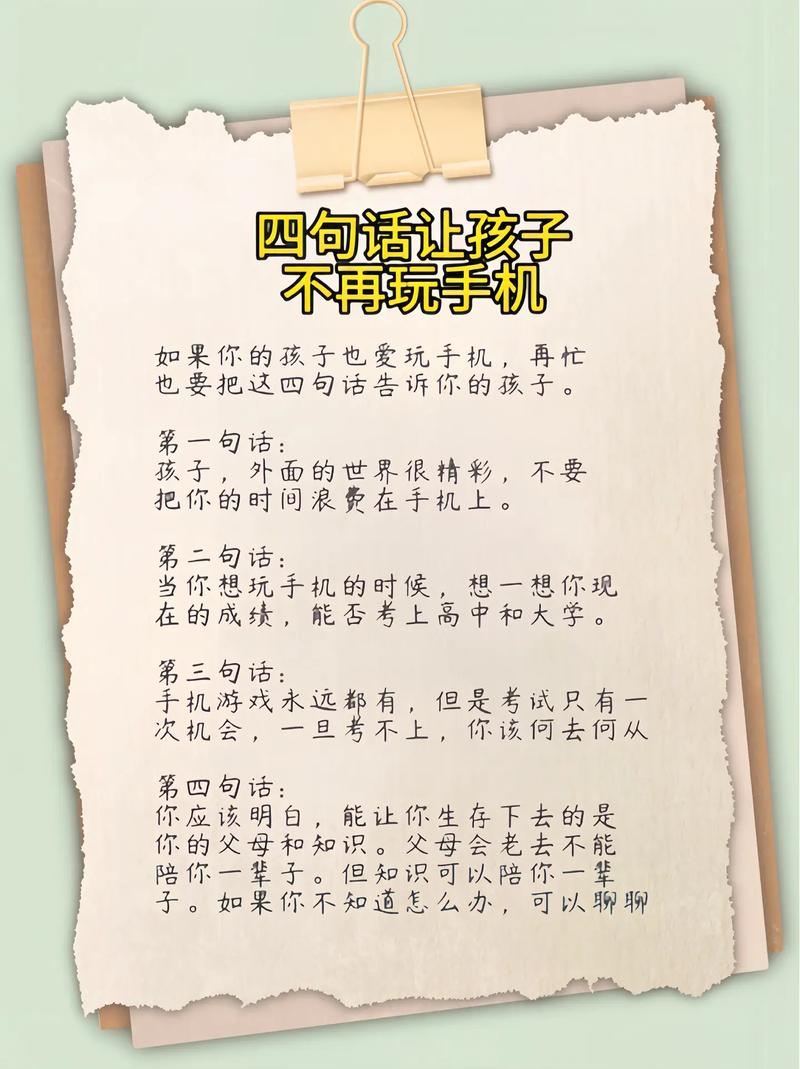 四句话让孩子
不再玩手机
如果你的孩子也爱玩手机，再忙
也要把这四句话告诉你的孩子。
第一句话：
孩子，外面的世界很精彩，不要
把你的时间浪费在手机上。
第二句话：
当你想玩手机的时候，想一想你现
在的成绩，能否考上高中和大学。
第三句话：
手机游戏永远都有，但是考试只有一
次机会，一旦考不上，你该何去何从
第四句话：
你应该明白，能让你生存下去的是
你的父母和知识。父母会老去不能
陪你一辈子。但知识可以陪你一辈
子。如果你不知道怎么办，可以聊聊